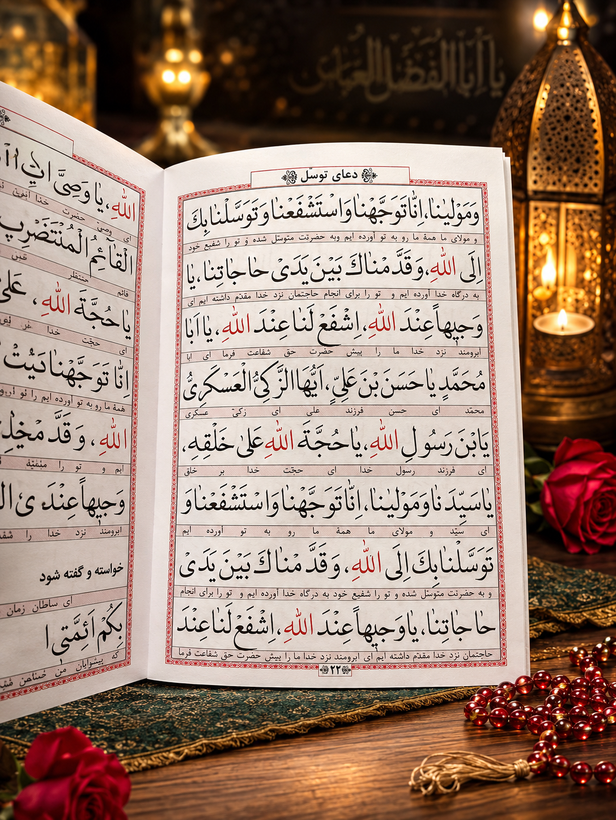 یا اباالفضل العباس
دعای توسّل
وَمَوْلينا، اِنّا تَوَجَّهْنا وَاسْتَشْفَعْنا وَ تَوَسَّلْنا بِكَ
و مولای ما همهٔ ما رو به تو آورده ایم وبه حضرتت متوسّل شده و تو را شفیع خود
اِلَى اللهِ، وَ قَدَّمْناكَ بَيْنَ يَدَىْ حاجاتِنا، يا
به درگاه خدا آورده ایم و تو را برای انجام حاجتمان نزد خدا مقدّم داشته ایم ای
وَجيهاً عِنْدَ اللهِ، اِشْفَعْ لَنا عِنْدَ اللهِ، يا اَبا
آبرومند نزد خدا ما را پیش حضرت حق شفاعت فرما ای ابا
مُحَمَّدٍ يا حَسَنَ بْنَ عَلِيٍّ، اَيُّهَا الزَّكِىُّ الْعَسْكَرِىُّ
محمّد ای حسن فرزند علی ای زکیّ عسکری
يَا بْنَ رَسُولِ اللهِ، يا حُجَّةَ اللهِ عَلى خَلْقِهِ،
ای فرزند رسول خدا ای حجّت خدا بر خلق
يا سَيِّدَنا وَ مَوْلينا، اِنّا تَوَجَّهْنا وَ اسْتَشْفَعْنا وَ
ای سیّد و مولای ما همهٔ ما رو به تو آورده ایم
تَوَسَّلْنا بِكَ اِلَى اللهِ، وَ قَدَّمْناكَ بَيْنَ يَدَىْ
و به حضرتت متوسّل شده و تو را شفیع خود به درگاه خدا آورده ایم و تو را برای انجام
حاجاتِنا، يا وَجيهاً عِنْدَ اللهِ، اِشْفَعْ لَنا عِنْدَ
حاجتمان نزد خدا مقدّم داشته ایم ای آبرومند نزد خدا ما را پیش حضرت حق شفاعت فرما
۲۲
اللهِ، يا وَصِىَّ
ای وصی حضرت خدا
الْقائِمُ الْمُنْتَظَرُ
قائم منتظر
يا حُجَّةَ اللهِ، عَلى
ای حجّت خدا
اِنّا تَوَجَّهْنا
همهٔ ما رو به تو آورده ایم و تو را
اللهِ، وَ قَدَّ
ایم و تو را
وَجيهاً عِنْدَ
آبرومند نزد خدا ما را
خواسته و گفته شود
ای ساطان زمان
بِكُمْ اَئِمَّتى
که پیشوایان من